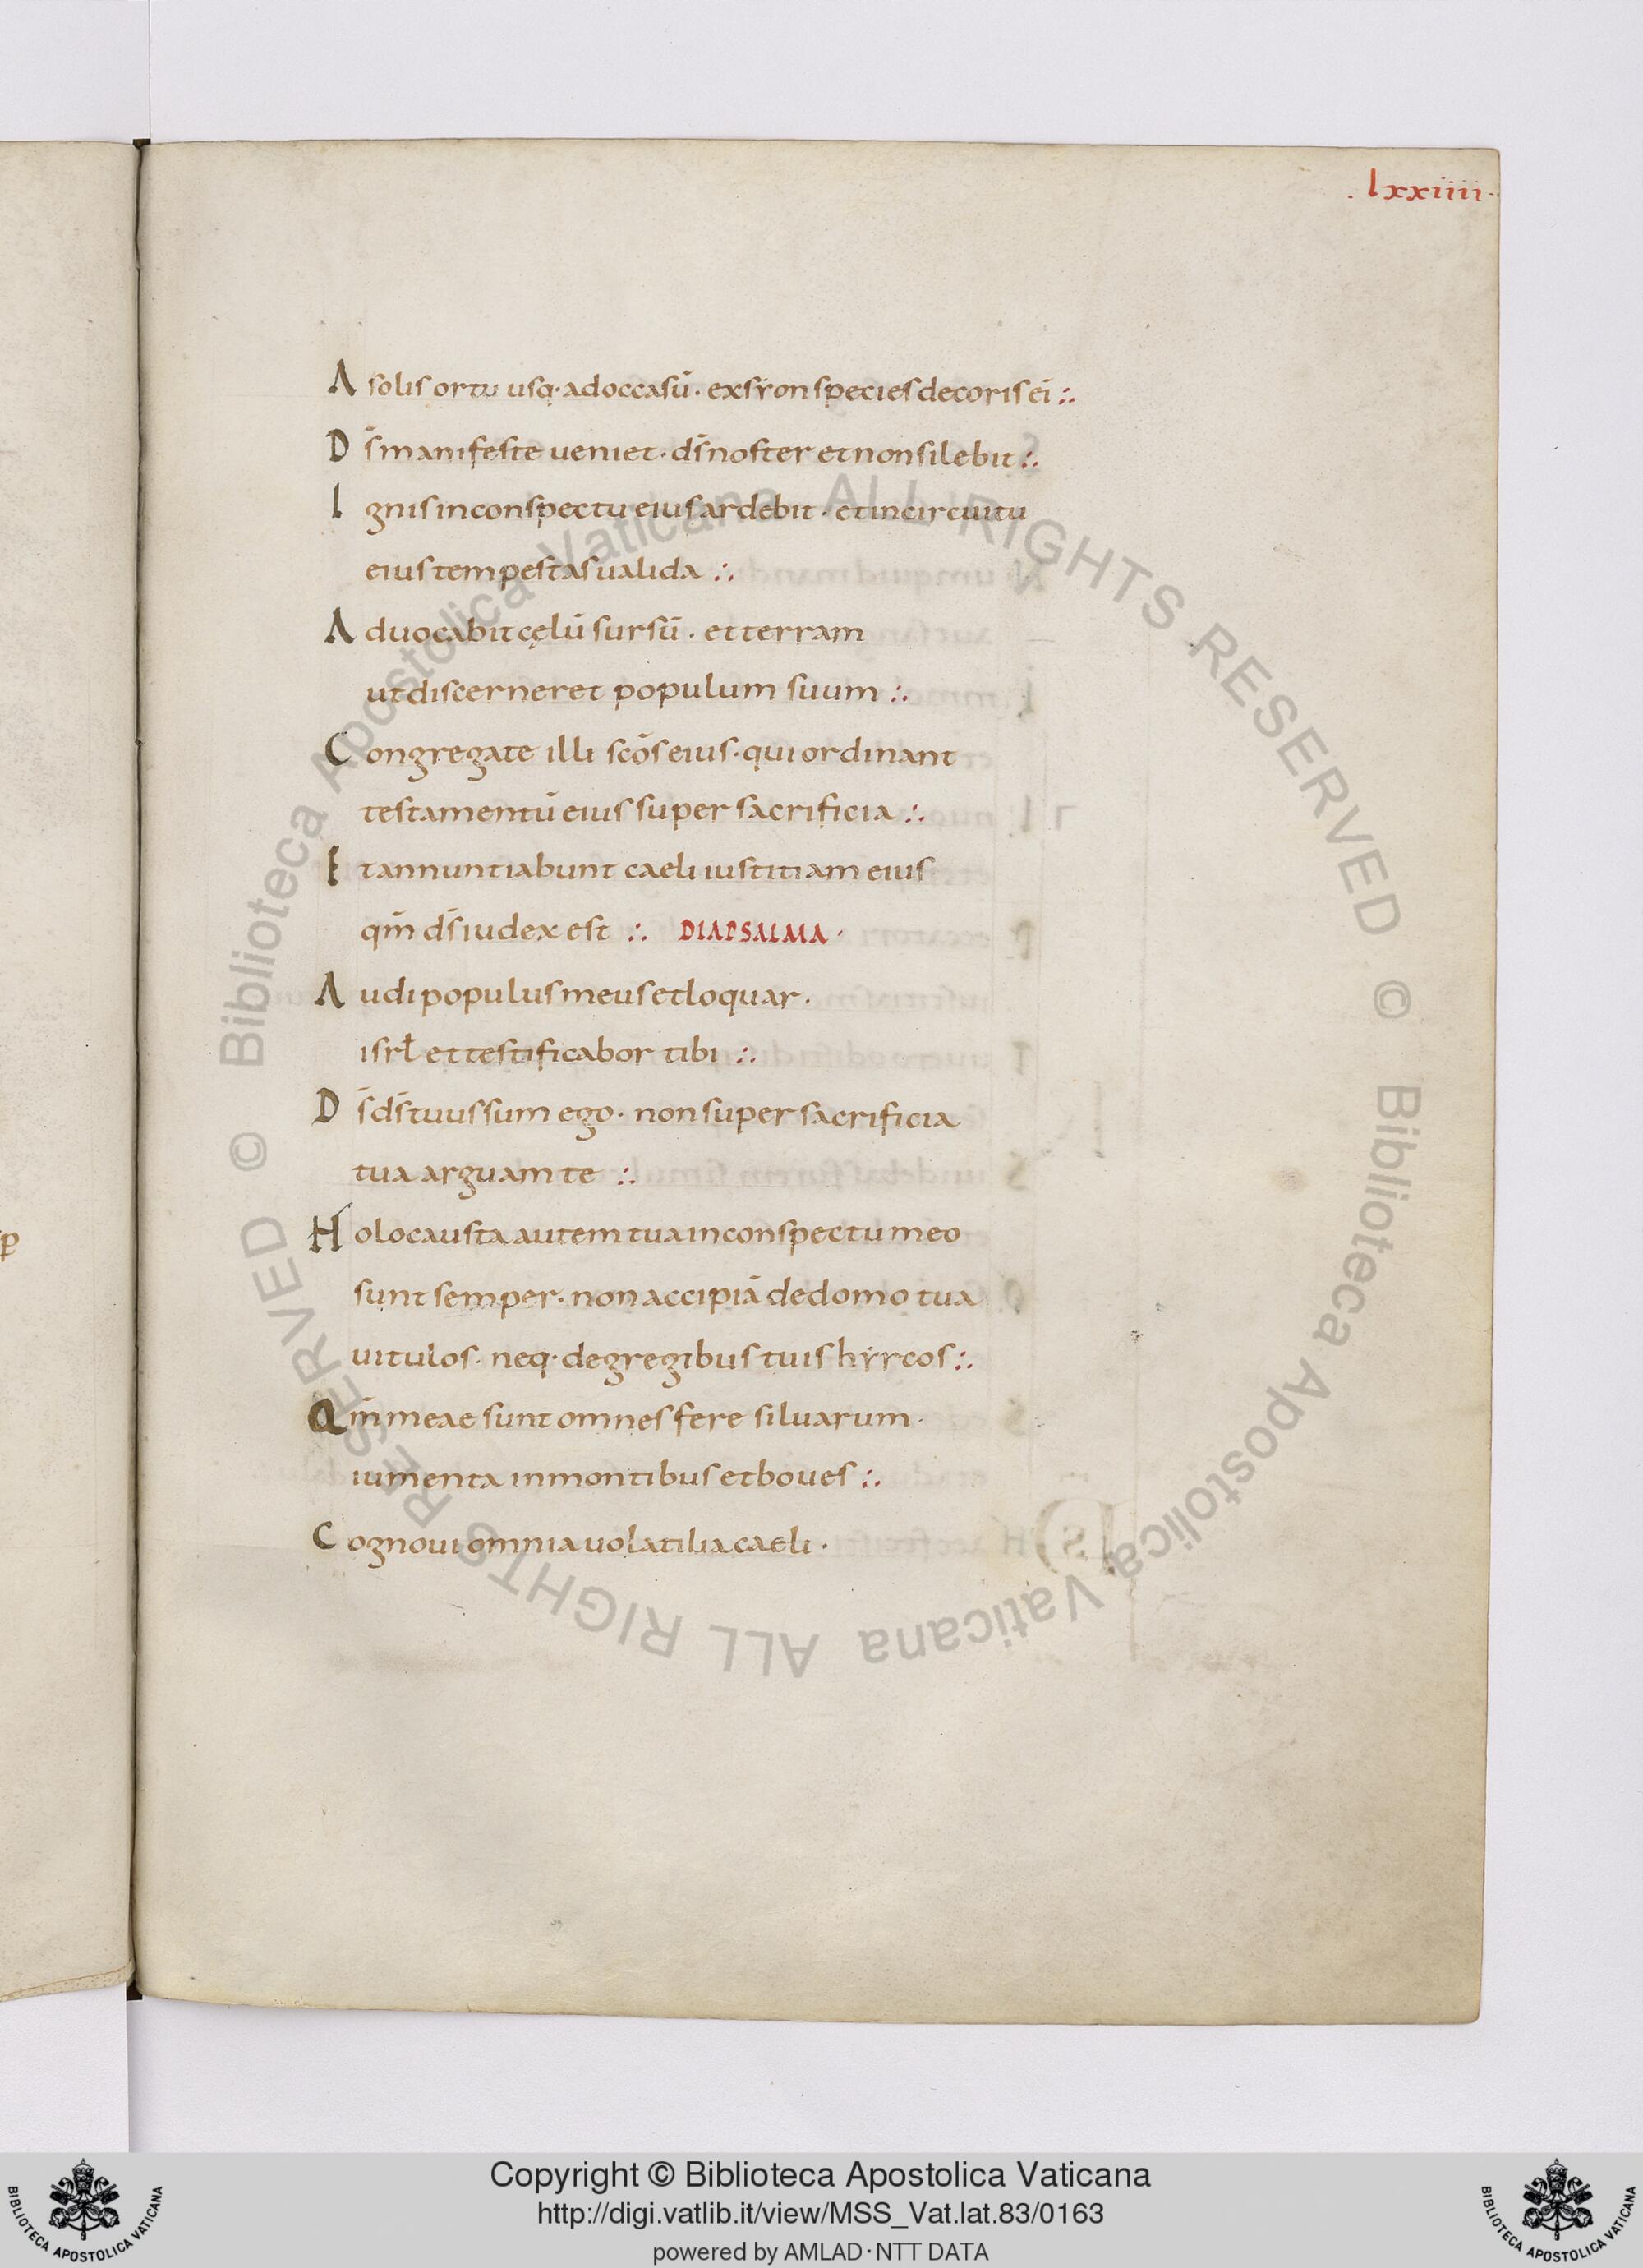 .lxxiiii.
A solis ortu usq· ad occasū· ex sẏon species decoris eī :.
D s̄ manifeste ueniet· ds̄ noster et non silebit :.
I gnis in conspectu eius ardebit· et in circuitu
eius tempestas ualida :.
A duocabit cęlū sursū· et terram
ut discerneret populum suum :.
C ongregate illi scōs eius· qui ordinant
testamentū eius super sacrificia :.
E t annuntiabunt caeli iustitiam eius
qm̄ ds̄ iudex est :. DIAPSALMA·
A udi populus meus et loquar·
isrł et testificabor tibi :.
D s̄ ds̄ tuus sum ego· non super sacrificia
tua arguam te :.
H olocausta autem tua in conspectu meo
sunt semper· non accipiā de domo tua
uitulos· neq· de gregibus tuis hẏrcos :.
Q m̄ meae sunt omnes fere siluarum·
iumenta in montibus et boues :.
C ognoui omnia uolatilia caeli·
© Biblioteca Apostolica Vaticana ALL RIGHTS RESERVED
© Biblioteca Apostolica Vaticana ALL RIGHTS RESERVED
Copyright © Biblioteca Apostolica Vaticana
http://digi.vatlib.it/view/MSS_Vat.lat.83/0163
powered by AMLAD·NTT DATA
BIBLIOTECA APOSTOLICA VATICANA
BIBLIOTECA APOSTOLICA VATICANA